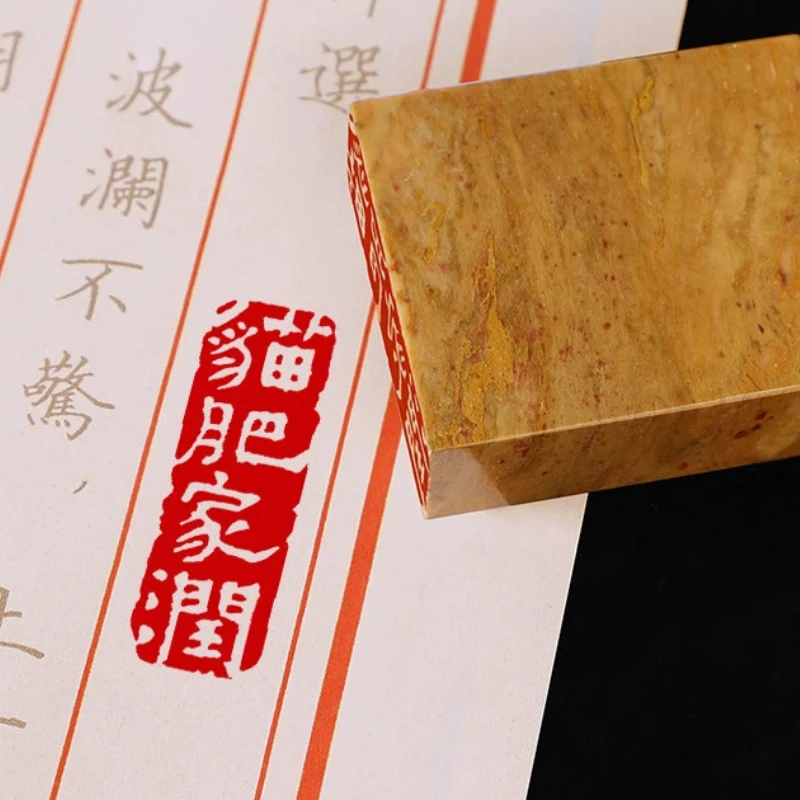 選
貓肥家潤
波瀾不驚，